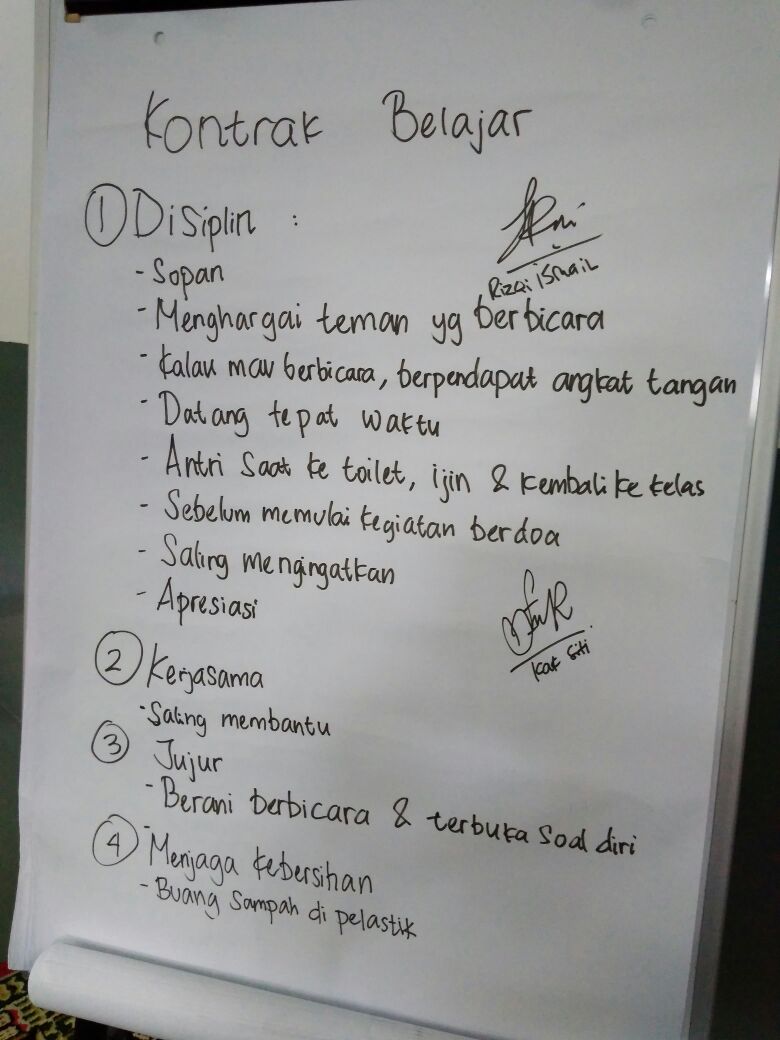 Kontrak Belajar
1 Disiplin :
Rizqi ismail
- Sopan
- Menghargai teman yg berbicara
- Kalau mau berbicara, berpendapat angkat tangan
- Datang tepat waktu
- Antri saat ke toilet, ijin & kembali ke kelas
- Sebelum memulai kegiatan berdoa
- Saling mengingatkan
- Apresiasi
Kak Siti
2 Kerjasama
- Saling membantu
3 Jujur
- Berani berbicara & terbuka soal diri
4 Menjaga kebersihan
- Buang sampah di pelastik